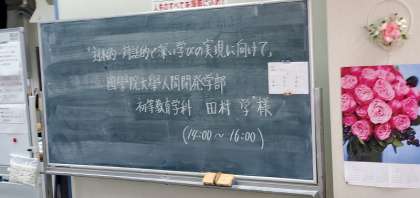 「主体的・対話的で深い学びの実現に向けて」
國學院大學人間開発学部
初等教育学科 田村 学 様
(14:00～16:00)